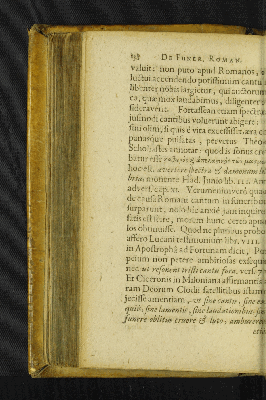 DE FUNER. ROMAN.
valuit: non puto apud Romanos, e
luctui accendendo potissimum cantu
libenter nobis largietur, qui auctorum
ca, quæ mox laudabimus, diligenter
sideraverit. Fortassean etiam spectra
jusmodi cantibus voluerunt abigere:
fuit olim, si quis e vita excessisset, æra
panasque pulsitas; pervetus Theo
Scholiastes annotat: quod is sonus cre
batur esse
hoc est, avertere spectra & dæmonum
bras monente Had. Junio lib.
advers. cap. xi. Verumenimvero qua
de causa Romani cantum in funerib
surparunt, nolo hic anxie jam inquire
satis est scire, morem hunc certo apud
los obtinuisse. Quod ne pluribus probe
affero Lucani testimonium lib. VIII.
in Apostrophâ ad Fortunam dicit, Po
peium non petere ambitiosas exsequ
nec ut resonent tristi cantu fora. vers. 7
Et Ciceronis in Miloniana affirmantis
ram Deorum Clodii satellitibus istam
jecisse amentiam, ut sine cantu, sine
quiis, sine lamentis, sine laudationibus,
funere oblitus cruore & luto, ambureretur